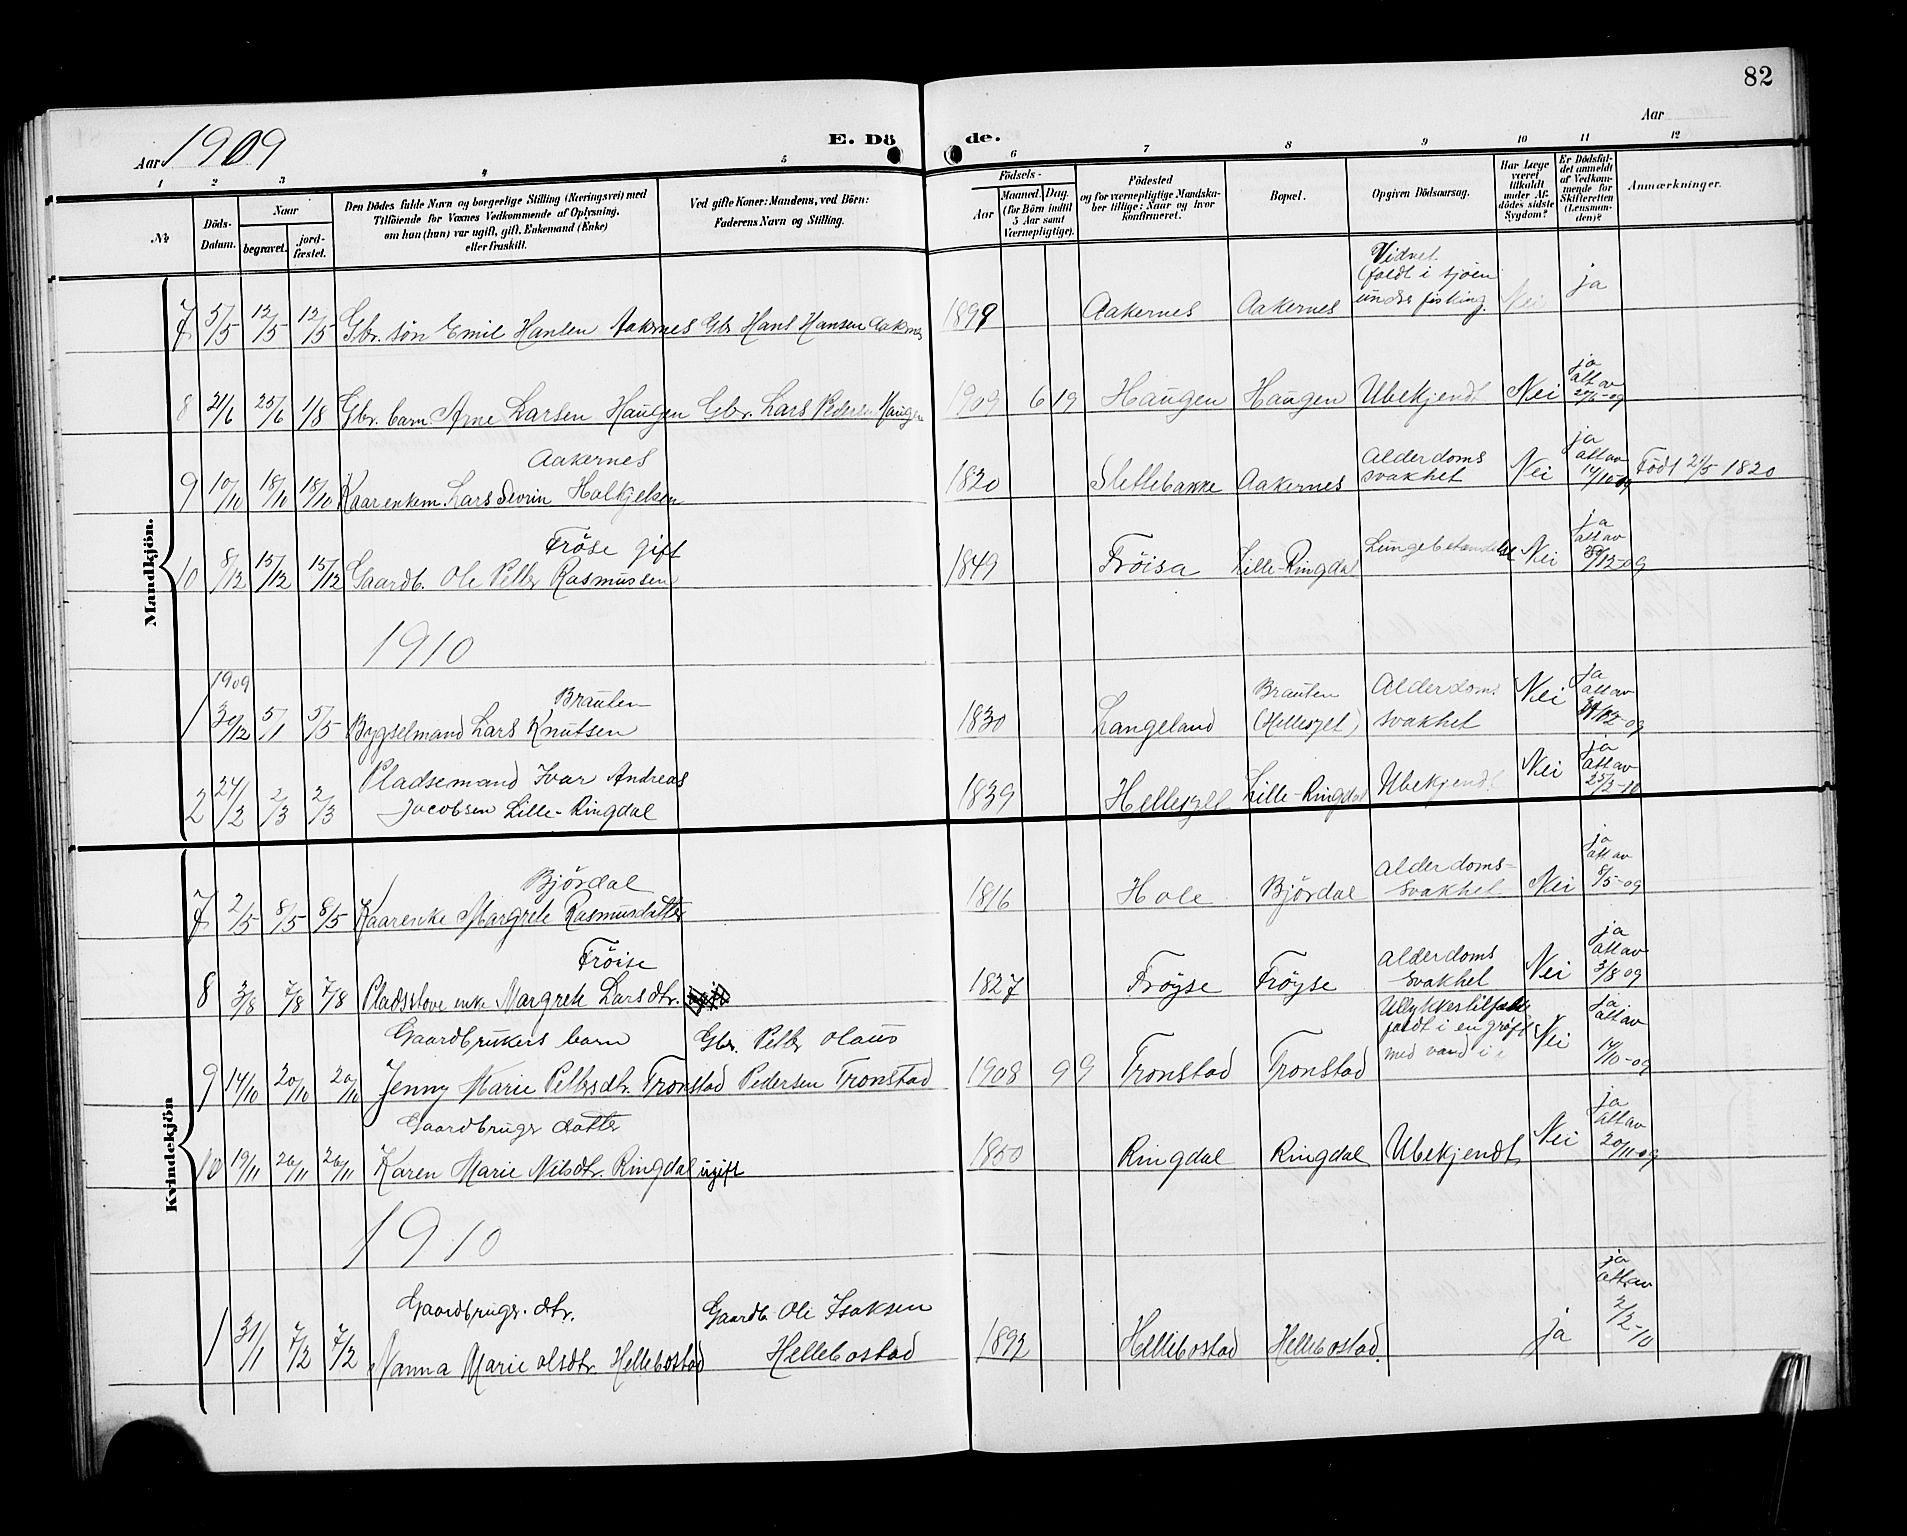 82
Aar 1909
E. Dö de.
Aar
1 2 3 4 5 6 7 8 9 10 11 12
№
Döds-Datum.
Naar begravet. jord-fæstet.
Den Dödes fulde Navn og borgerlige Stilling (Næringsvei) med
Tilföiende for Voxnes Vedkommende af Oplysning,
om han (hun) var ugift, gift, Enkemand (Enke)
eller fraskilt.
Ved gifte Koner: Mandens, ved Börn:
Faderens Navn og Stilling.
Födsels-
Aar Maaned. Dag.
(for Börn indtil 5 Aar samt Værnepligtige).
Födested
og for værnepligtige Mandska-
ber tillige: Naar og hvor
konfirmeret.
Bopæl.
Opgiven Dödsaarsag.
Har Læge været tilkaldt under Afdödes sidste Sygdom?
Er Dödsfaldet anmeldt af Vedkommende for Skifteretten (Lensmanden)?
Anmærkninger.
Mandkjön.
7 5/5 12/5 12/5 Gbr. søn Emil Hansen Aakernes Gbr Hans Hansen Aakernes 1899 Aakernes Aakernes
(faldt i sjøen
under fisking. Nei ja
8 21/6 25/6 1/8 Gbr. barn Arne Larsen Haugen Gbr. Lars Pedersen Haugen 1909 6 19 Haugen Haugen Ubekjendt Nei
ja
att av
Aakernes
9 10/10 18/10 18/10 Kaarenkem. Lars Sevrin Halkjelsen 1820 Slettebakke Aakernes
Alderdoms
svakhet Nei
ja
att av
14/10-09 Født 21/5 1820
Frøse gift
10 8/12 15/12 15/12 Gaardb. Ole Petter Rasmussen 1849 Frøisa Lille-Ringdal Nei
ja
att av
1910
1909
Brauten
1 30/12 5/1 5/5 Bygselmand Lars Knutsen 1830 Langeland
Brauten
(Hellesylt)
Alderdoms
svakhet Nei
ja
att av
2 24/2 2/3 2/3 Pladsemand Ivar Andreas
Jacobsen Lille-Ringdal 1839 Hellesylt Lille-Ringdal Ubekjendt Nei
ja
att av
Kvindekjön
Bjørdal
7 2/5 8/5 8/5 Kaarenke Margrete Rasmusdatter 1816 Hole Bjørdal
Alderdoms-
svakhet Nei
ja
att av
8/5-09
Frøise
8 3/8 7/8 7/8 Pladsstove enke Margrete Larsdtr. 1827 Frøyse Frøyse
Alderdoms
svakhet Nei
ja
att av
3/8 09
Gaardbrukers barn Gbr. Petter Olaus
9 14/10 20/10 20/10 Jenny Marie Pettersdtr. Tronstad Pedersen Tronstad 1908 9 9 Tronstad Tronstad
faldt i en grøft
med vand i Nei
ja
att av
14/10-09
Gaardbrugr datter
10 19/11 26/11 26/11 Karen Marie Nilsdtr. Ringdal ugift 1850 Ringdal Ringdal Ubekjendt Nei
ja
att av
20/11-09
1910
Gaardbrugr. dtr. Gaardb. Ole Isaksen
1 31/1 7/2 7/2 Nanna Marie Olsdtr. Hellebostad Hellebostad Hellebostad Hellebostad. ja
ja
att av
2/2-10